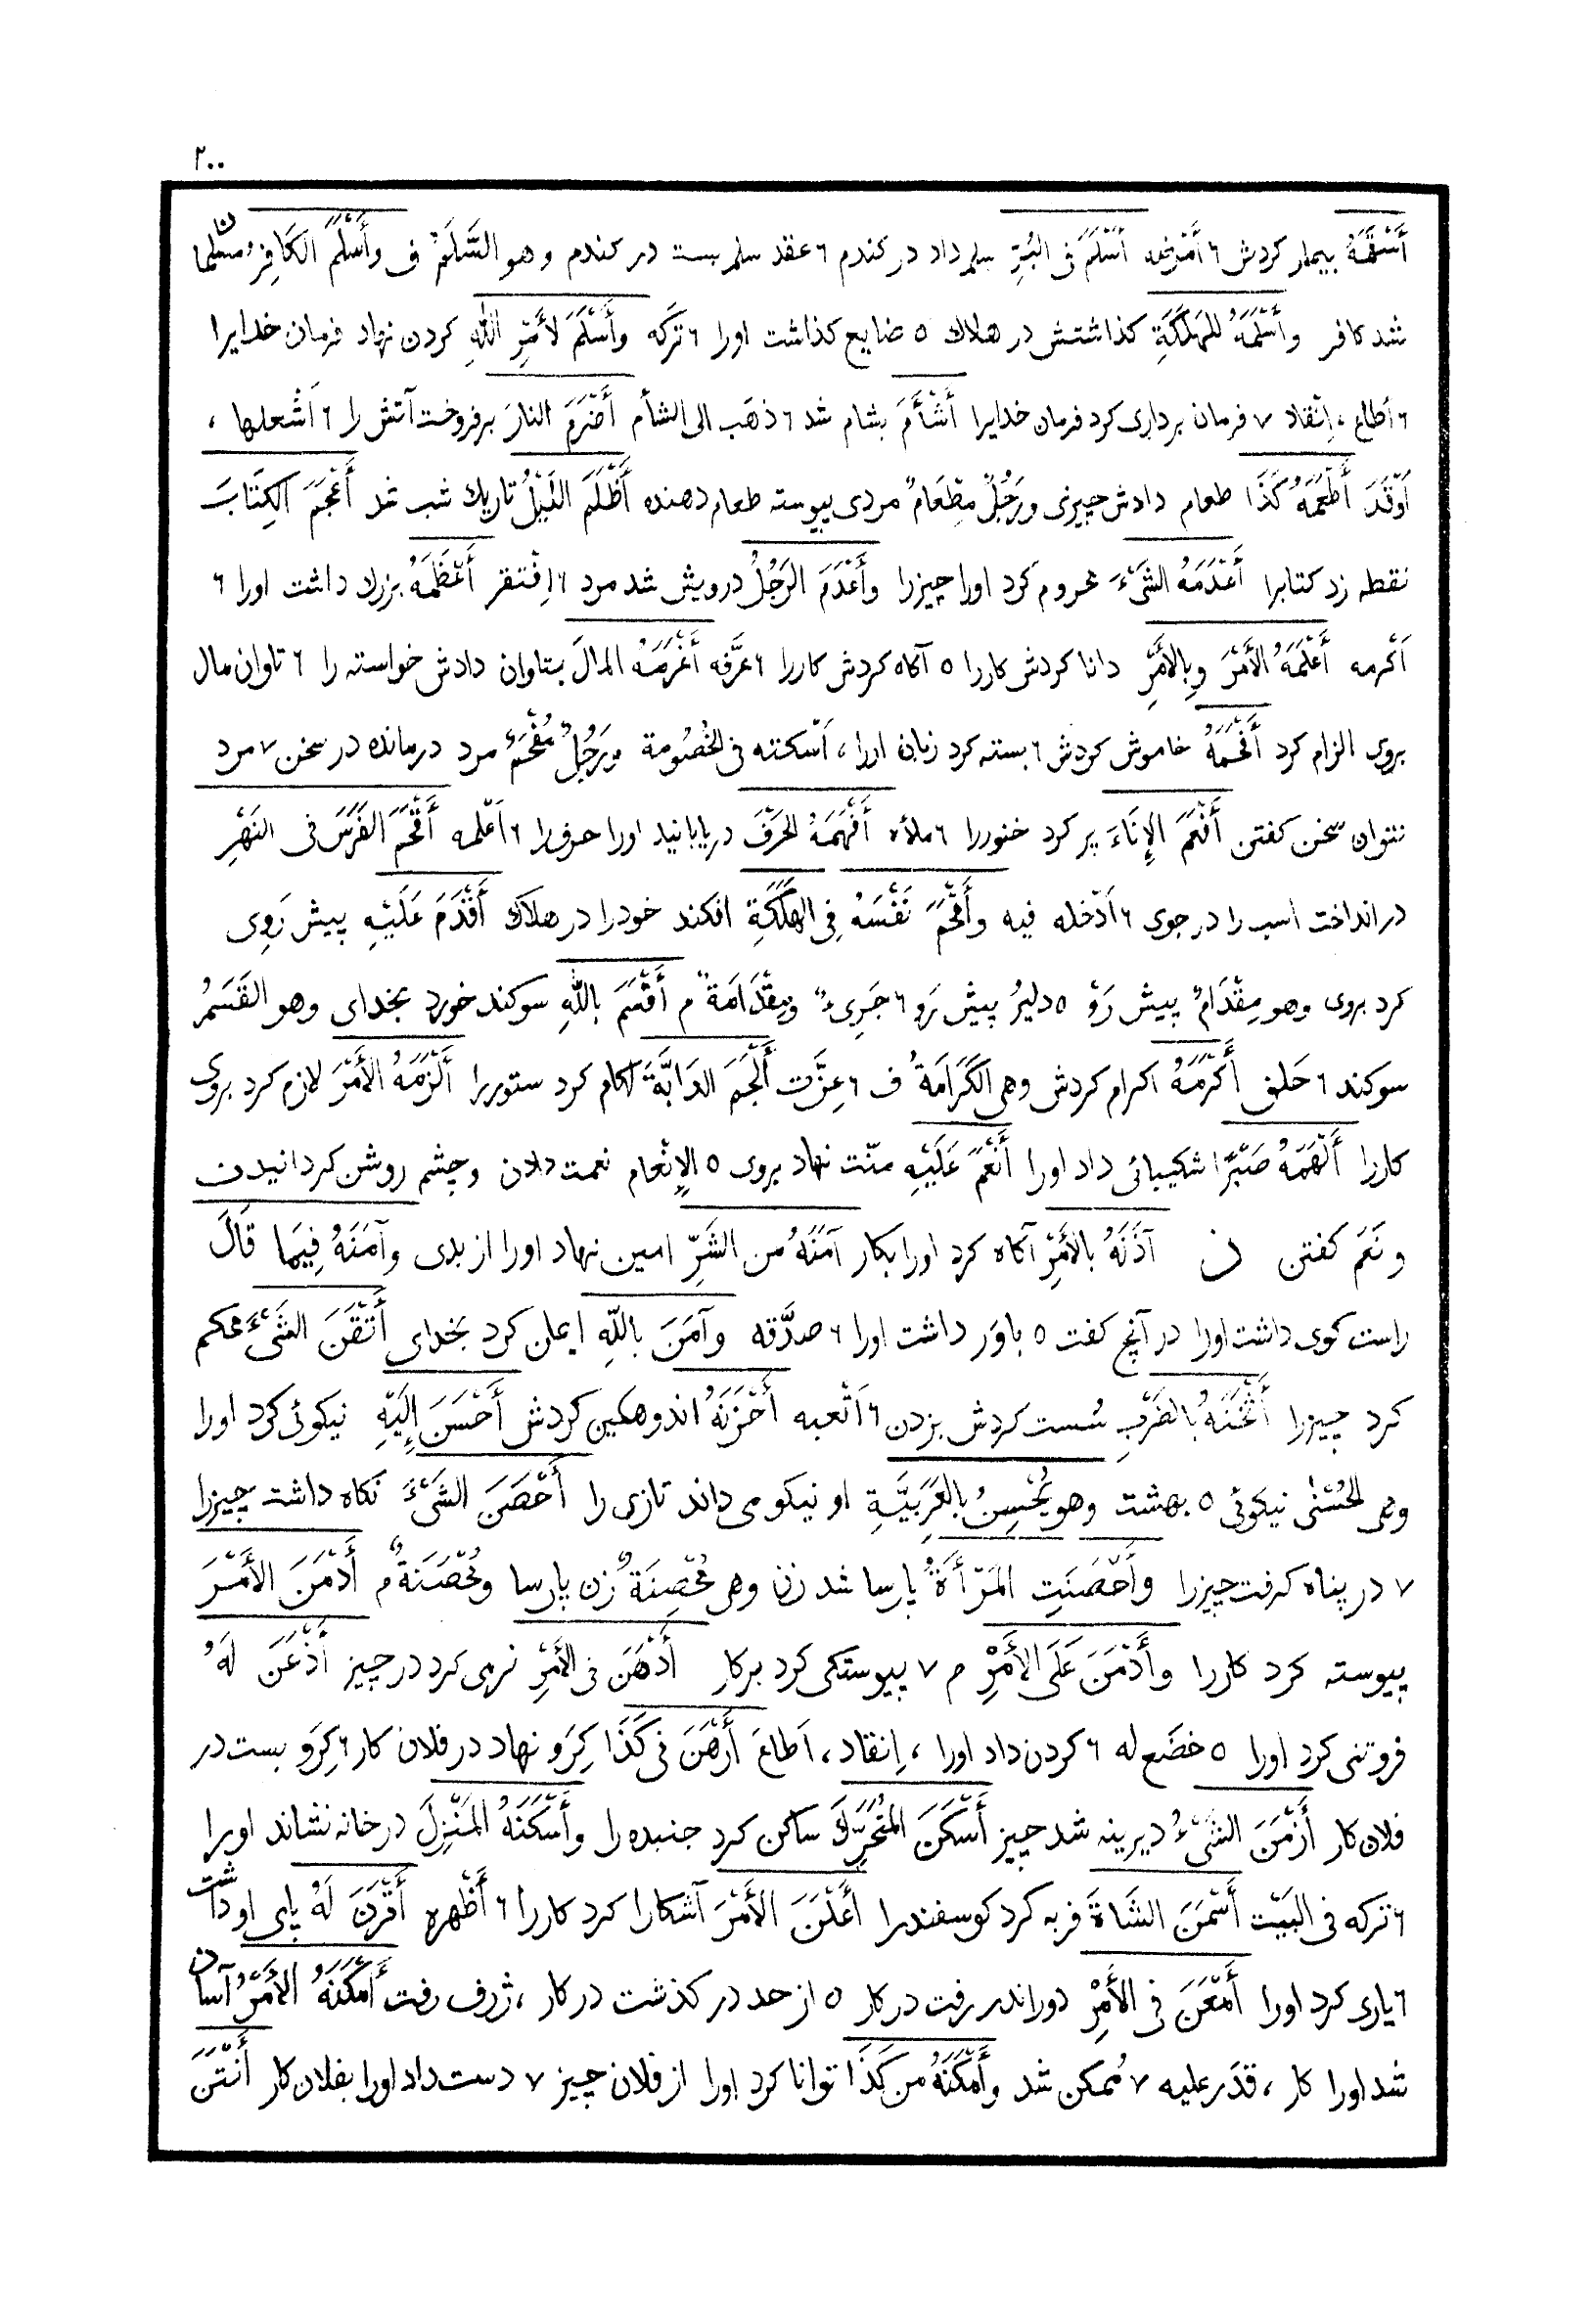 ٢٠٠
أَسْقَمَهُ بیمار کردش ٦ أَمْرَضه أَسْلَمَ فی البُرِّ سلم داد در کندم ٦ عقد سلم بست در کندم وهو السَّلَمُ ف وأَسْلَمَ الكَافِرُ مسلمان
شد کافر وأَسْلَمَهُ للهَلَكَةِ کذاشتش در هلاک ٥ ضایع کذاشت اورا ٦ ترَكه وأَسْلَمَ لأَمْرِ اللّٰهِ کردن نهاد فرمان خدایرا
٦ أطاع ، اِنْقاد ٧ فرمان برداری کرد فرمان خدایرا أَشْأَمَ بشام شد ٦ ذهَب الی الشأم أَضْرَمَ النارَ برفروخت آتش را ٦ اَشْعلها ،
اَوْقَدَ أَطْعَمَهُ كَذَا طعام دادش چیزی ورَجُلٌ مِطْعَامٌ مردی پیوسته طعام دهنده أَظْلَمَ اللَّيْلُ تاریك شب شد أَعْجَمَ الكِتَابَ
نقطه زد کتابرا أَعْدَمَهُ الشَیْءَ محروم کرد اورا چیزرا وأَعْدَمَ الرَجُلُ درویش شد مرد ٦ اِفْتقر أَعْظَمَهُ بزرك داشت اورا ٦
اَكْرمه أَعْلَمَهُ الأَمْرَ وبِالأَمْرِ دانا کردش کاررا ٥ آکاه کردش کاررا ٦ عرَّفه أَغْرَمَهُ المالَ بتاوان دادش خواسته را ٦ تاوان مال
بروی الزام کرد أَفْحَمَهُ خاموش کردش ٦ بسته کرد زبان اورا ، اَسْكته فی الخُصُومة ورَجُلٌ مُفْحَمٌ مرد درمانده در سخن ٧ مرد
نتوان سخن کفتن أَفْعَمَ الإِنَاءَ پر کرد خنوررا ٦ ملأه أَفْهَمَهُ الحَرْفَ دریابانید اورا حرفرا ٦ اَعْلمه أَقْحَمَ الفَرَسَ فی النَهْرِ
درانداخت اسب را در جوی ٦ اَدْخله فیه وأَقْحَمَ نَفْسَهُ فِی الهَلَكَةِ افکند خودرا در هلاك أَقْدَمَ عَلَيْهِ پیش رَوی
کرد بروی وهو مِقْدَامٌ پیش رَوْ ٥ دلیرُ پیش رَو ٦ جَرِیءٌ ومِقْدَامَةٌ م أَقْسَمَ بِاللّٰهِ سوکند خورد بخدای وهو القَسَمُ
سوکند ٦ حَلف أَكْرَمَهُ اکرام کردش وهی الكَرَامَةُ ف ٦ عِزَّت أَلْجَمَ الدَابَّةَ لکام کرد ستوررا أَلْزَمَهُ الأَمْرَ لازم کرد بروی
کاررا أَلْهَمَهُ صَبْرًا شکیبائی داد اورا أَنْعَمَ عَلَيْهِ منّت نهاد بروی ٥ الإِنْعام نعمت دادن وچشم روشن کردانیدن
و نَعَمْ کفتن ن آذَنَهُ بالأَمْرِ آکاه کرد اورا بکار آمَنَهُ من الشَرِّ امین نهاد اورا از بدی وآمَنَهُ فِيمَا قَالَ
راست کوی داشت اورا در آنچ کفت ٥ باوَر داشت اورا ٦ صدَّقه وآمَنَ بِاللّٰهِ ایمان کرد بخدای أَتْقَنَ الشَیْءَ محکم
کرد چیزرا أَثْخَنَهُ بالضَرْبِ سُست کردش بزدن ٦ اَتْعبه أَحْزَنَهُ اندوهکین کردش أَحْسَنَ إِلَيْهِ نیکوئی کرد اورا
وهی الحُسْنٰى نیکوئی ٥ بهشت وهو يُحْسِنُ بالعَرَبِيَّةِ او نیکو می داند تازی را أَحْصَنَ الشَیْءَ نکاه داشت چیزرا
٧ در پناه کرفت چیزرا وأَحْصَنَتِ المَرْأَةُ پارسا شد زن وهی مُحْصِنَةٌ زن پارسا ومُحْصَنَةٌ م أَدْمَنَ الأَمْرَ
پیوسته کرد کاررا وأَدْمَنَ عَلَى الأَمْرِ م ٧ پیوستکی کرد برکار أَدْهَنَ فی الأَمْرِ نرمی کرد در چیز أَذْعَنَ لَهُ
فروتنی کرد اورا ٥ خضَع له ٦ کردن داد اورا ، اِنقاد ، اَطاعَ أَرْهَنَ فی كَذَا کِرَو نهاد در فلان کار ٦ کِرَو بست در
فلان کار أَزْمَنَ الشَیْءُ دیرینه شد چیز أَسْكَنَ المُتَحَرِّكَ ساکن کرد جنبده را وأَسْكَنَهُ المَنْزِلَ در خانه نشاند اورا
٦ ترکه فی البَيْت أَسْمَنَ الشَاةَ فربه کرد کوسفندرا أَعْلَنَ الأَمْرَ آشکارا کرد کاررا ٦ أَظْهره أَقْرَنَ لَهُ پای او داشت
٦ یاری کرد اورا أَمْعَنَ فی الأَمْرِ دور اندر رفت در کار ٥ از حد در کذشت در کار ، ژرف رفت أَمْكَنَهُ الأَمْرُ آسان
شد اورا کار ، قدَر علیه ٧ مُمکن شد وأَمْكَنَهُ من كَذَا توانا کرد اورا از فلان چیز ٧ دست داد اورا بفلان کار أَنْتَنَ